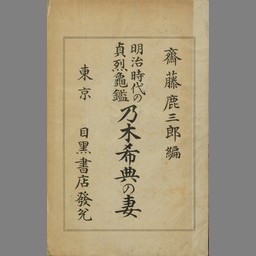 齋藤鹿三郎編
明治時代の
貞烈龜鑑
乃木希典の妻
東京 目黒書店發兌